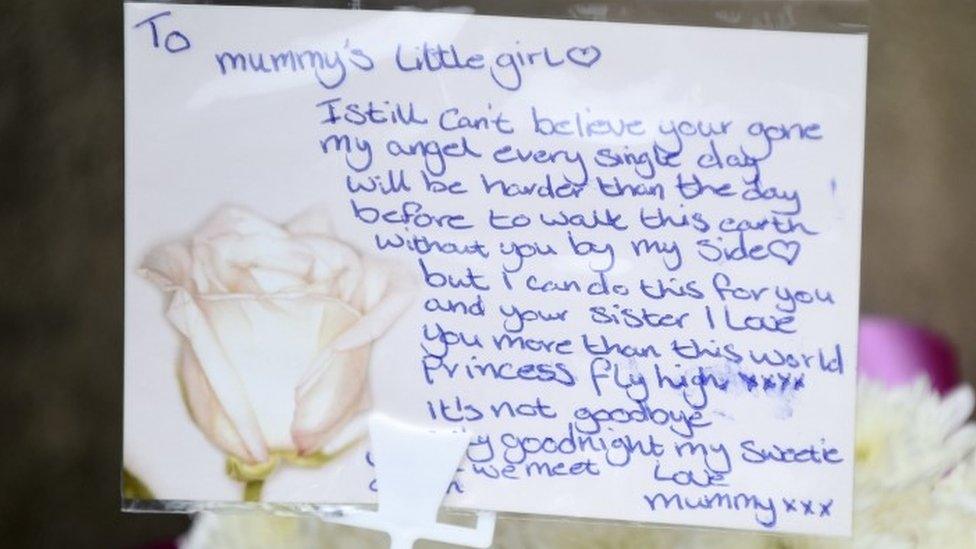 To
mummy's little girl♡
I still can't believe your gone
my angel every single day
will be harder than the day
before to walk this earth
without you by my side♡
but I can do this for you
and your sister I Love
you more than this world
Princess fly high xxxx
it's not goodbye
goodnight my Sweetie
we meet Love
mummy xxx